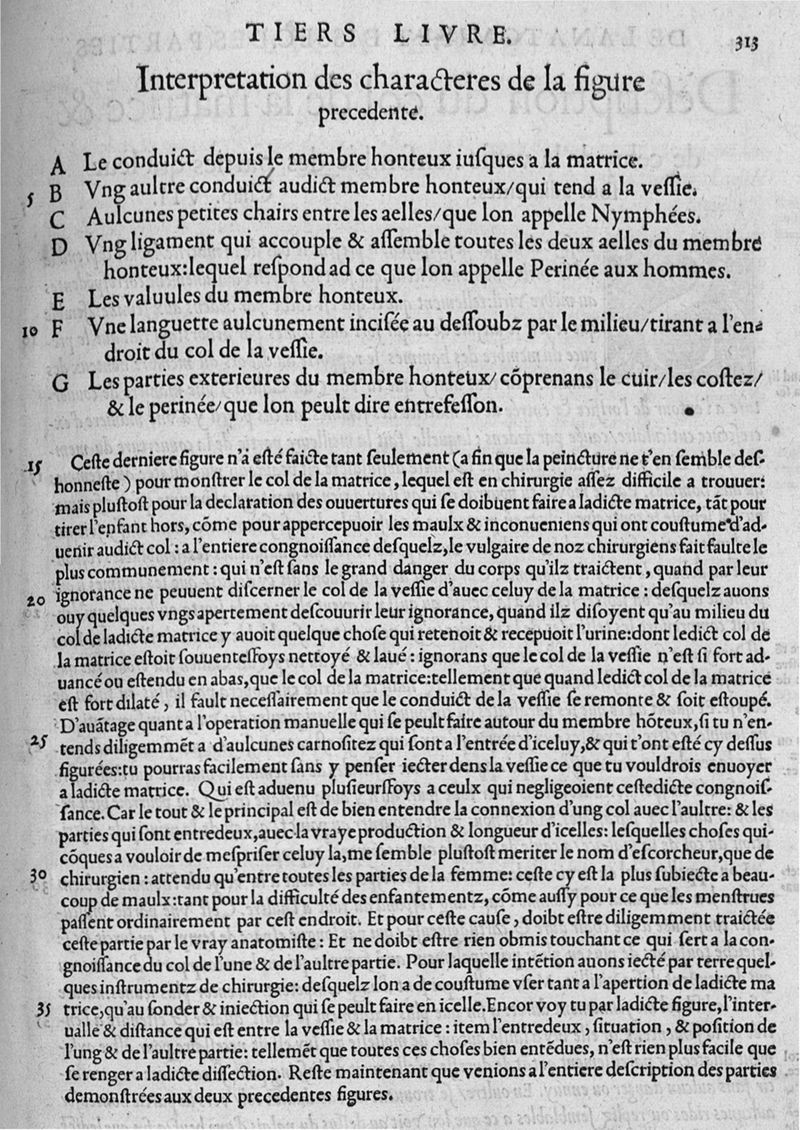 TIERS LIVRE.
313
Interpretation des characteres de la figure
precedente.
A Le conduict depuis le membre honteux iuſques a la matrice.
5
B Vng aultre conduict audict membre honteux/qui tend a la veſſie.
C Aulcunes petites chairs entre les aelles/que lon appelle Nymphées.
D Vng ligament qui accouple & aſſemble toutes les deux aelles du membre
honteux:lequel reſpond ad ce que lon appelle Perinée aux hommes.
E Les valuules du membre honteux.
10 F Vne languette aulcunement inciſée au deſſoubz par le milieu/tirant a l'en-
droit du col de la veſſie.
G Les parties exterieures du membre honteux/cõprenans le cuir/les coſtez/
& le perinée/que lon peult dire entrefeſſon.
15 Ceſte derniere figure n'a eſté faicte tant ſeulement (a fin que la peincture ne t'en ſemble deſ-
honneſte) pour monſtrer le col de la matrice, lequel eſt en chirurgie aſſez difficile a trouuer:
mais pluſtoſt pour la declaration des ouuertures qui ſe doibuent faire a ladicte matrice, tãt pour
tirer l'enfant hors, cõme pour appercepuoir les maulx & inconueniens qui ont couſtume d'ad-
uenir audict col : a l'entiere congnoiſſance deſquelz, le vulgaire de noz chirurgiens fait faulte le
plus communement : qui n'eſt ſans le grand danger du corps qu'ilz traictent, quand par leur
20 ignorance ne peuuent diſcerner le col de la veſſie d'auec celuy de la matrice : deſquelz auons
ouy quelques vngs apertement deſcouurir leur ignorance, quand ilz diſoyent qu'au milieu du
col de ladicte matrice y auoit quelque choſe qui retenoit & recepuoit l'urine:dont ledict col de
la matrice eſtoit ſouuenteſfoys nettoyé & laué : ignorans que le col de la veſſie n'eſt ſi fort ad-
uancé ou eſtendu en abas, que le col de la matrice:tellement que quand ledict col de la matrice
eſt fort dilaté, il fault neceſſairement que le conduict de la veſſie ſe remonte & ſoit eſtoupé.
D'auãtage quant a l'operation manuelle qui ſe peult faire autour du membre hõteux, ſi tu n'en-
25 tends diligemmẽt a d'aulcunes carnoſitez qui ſont a l'entrée d'iceluy, & qui t'ont eſté cy deſſus
figurées:tu pourras facilement ſans y penſer iecter dens la veſſie ce que tu vouldrois enuoyer
a ladicte matrice. Qui eſt aduenu pluſieurſfoys a ceulx qui negligeoient ceſtedicte congnoiſ-
ſance. Car le tout & le principal eſt de bien entendre la connexion d'ung col auec l'aultre: & les
parties qui ſont entredeux, auec la vraye production & longueur d'icelles: leſquelles choſes qui-
cõques a vouloir de meſpriſer celuy la, me ſemble pluſtoſt meriter le nom d'eſcorcheur, que de
30 chirurgien : attendu qu'entre toutes les parties de la femme: ceſte cy eſt la plus ſubiecte a beau-
coup de maulx:tant pour la difficulté des enfantementz, cõme auſſy pour ce que les menſtrues
paſſent ordinairement par ceſt endroit. Et pour ceſte cauſe, doibt eſtre diligemment traictée
ceſte partie par le vray anatomiſte : Et ne doibt eſtre rien obmis touchant ce qui ſert a la con-
gnoiſſance du col de l'une & de l'aultre partie. Pour laquelle intẽtion auons iecté par terre quel-
ques inſtrumentz de chirurgie: deſquelz lon a de couſtume vſer tant a l'apertion de ladicte ma
35 trice, qu'au ſonder & iniection qui ſe peult faire en icelle. Encor voy tu par ladicte figure, l'inter-
ualle & diſtance qui eſt entre la veſſie & la matrice : item l'entredeux, ſituation, & poſition de
l'ung & de l'aultre partie: tellemẽt que toutes ces choſes bien entẽdues, n'eſt rien plus facile que
ſe renger a ladicte diſſection. Reſte maintenant que venions a l'entiere deſcription des parties
demonſtrées aux deux precedentes figures.